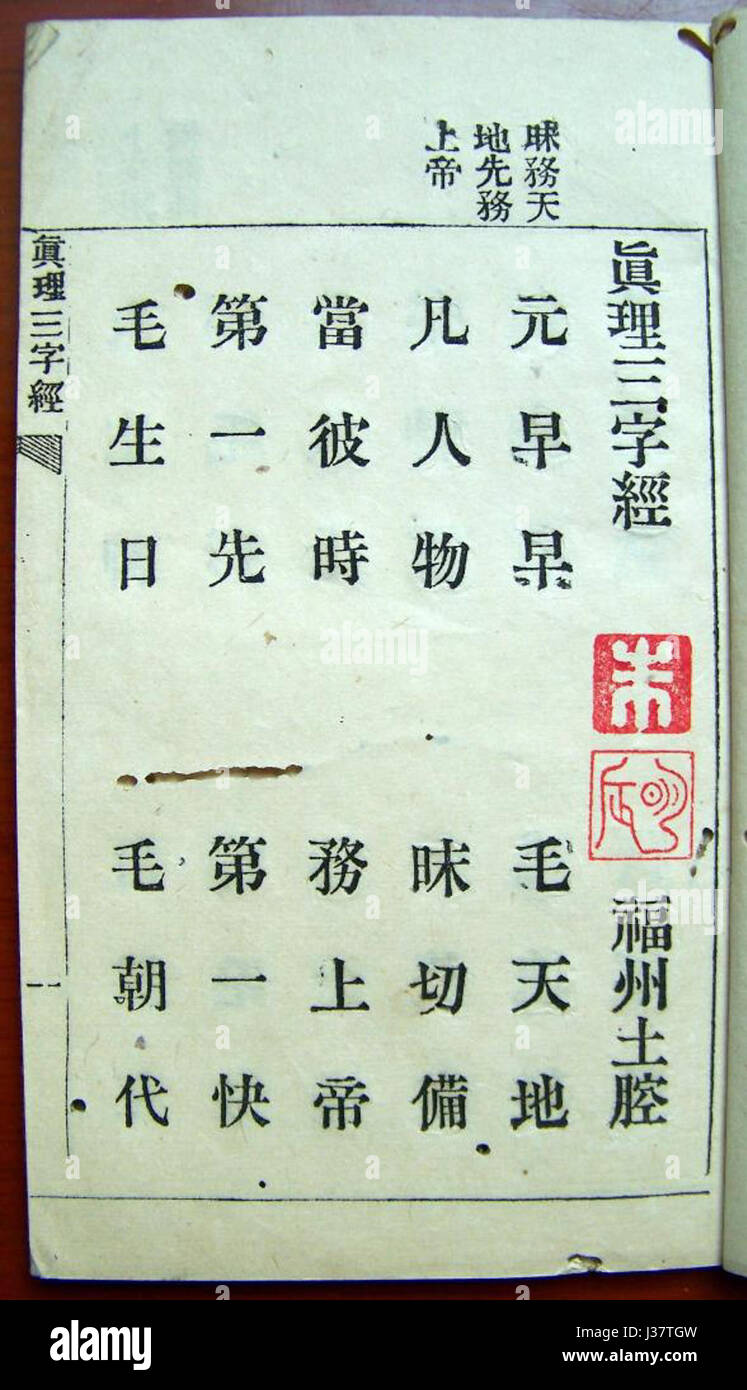 昧務天
地先務
上帝
眞理三字經 朱 福州土腔
元早早 毛天地
凡人物 昧切備
當彼時 務上帝
第一先 第一快
毛生日 毛朝代
眞理三字經 一
alamy
Image ID: J37TGW
www.alamy.com